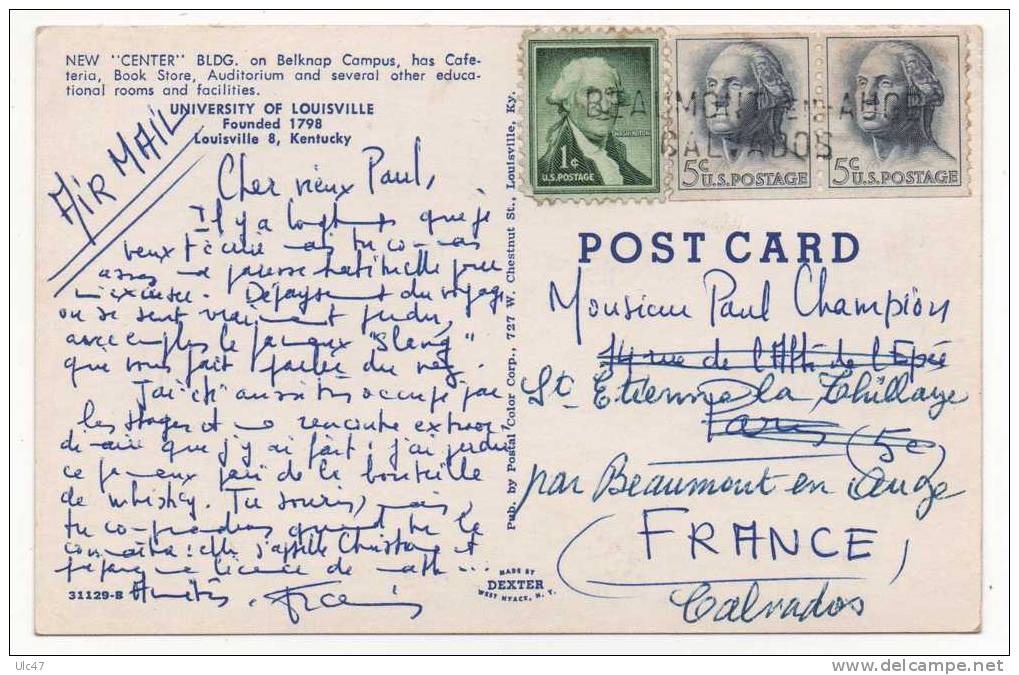 NEW "CENTER" BLDG. on Belknap Campus, has Cafe-
teria, Book Store, Auditorium and several other educa-
tional rooms and facilities.
UNIVERSITY OF LOUISVILLE
Founded 1798
Louisville 8, Kentucky
AIR MAIL
Cher vieux Paul,
Il y a longtemps que je
veux t'écrire mais tu connais
assez ma paresse habituelle pour
m'excuser. Dépaysement du voyage
on se sent vraiment perdu,
avec en plus le fameux "Slang"
que vous fait parler du nez.
J'ai été aussi très occupé par
les stages et une rencontre extraor-
dinaire que j'y ai fait ; j'ai perdu
ce fameux pari de la bouteille
de whisky. Tu souris, mais
tu comprendras quand tu la
connaîtras : elle s'appelle Christiane et
prépare une licence de math ...
Amitiés. Francis
31129-B
Pub. by Postal Color Corp., 727 W. Chestnut St., Louisville, Ky.
MADE BY
DEXTER
WEST NYACK, N.Y.
WASHINGTON
1¢
U.S. POSTAGE
5¢ U.S. POSTAGE
5¢ U.S. POSTAGE
BEAUMONT-EN-AUGE
CALVADOS
POST CARD
Monsieur Paul Champion
14 rue de l'Abbé de l'Epée
St. Etienne la Thillaye
Paris (5e)
par Beaumont en Auge
(FRANCE)
Calvados
Ulc47
delcampe.net